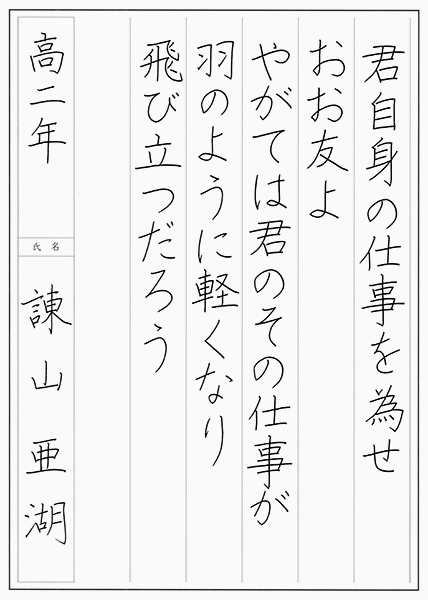 君自身の仕事を為せ
おお友よ
やがては君のその仕事が
羽のように軽くなり
飛び立つだろう
高二年
氏名
諫山亜湖